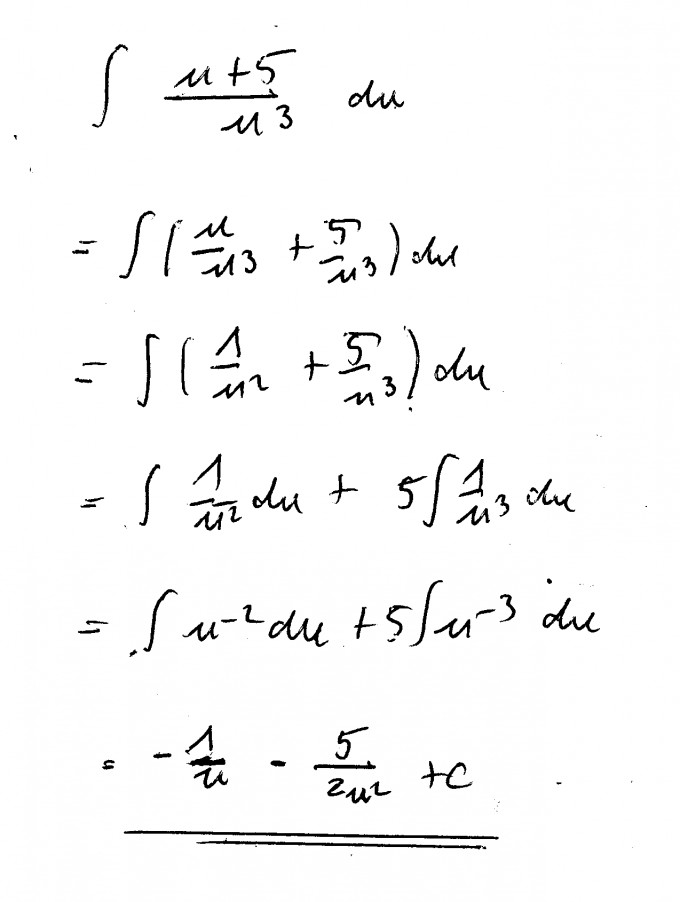 ∫ (u+5)/u³ du
= ∫ (u/u³ + 5/u³) du
= ∫ (1/u² + 5/u³) du
= ∫ 1/u² du + 5∫ 1/u³ du
= ∫ u⁻² du + 5∫ u⁻³ du
= -1/u - 5/(2u²) + C